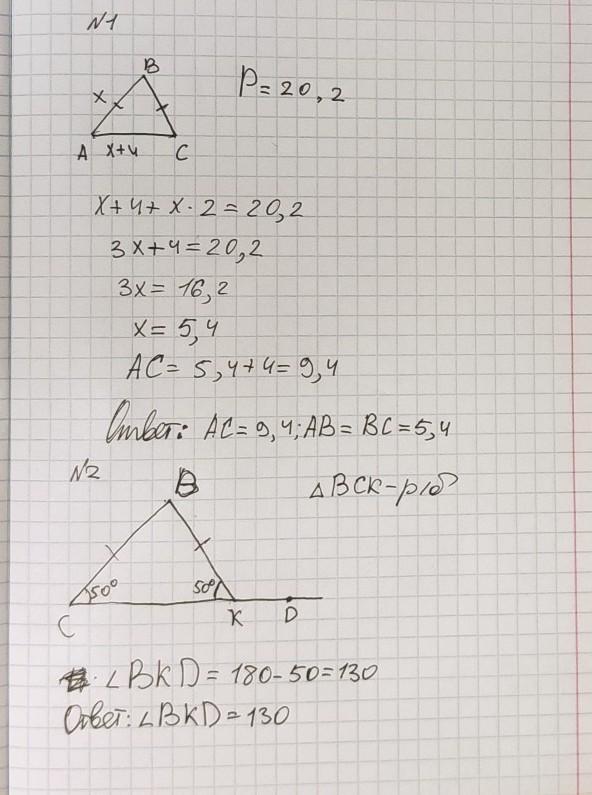 N1
B
x
P = 20,2
A x+4 C
x+4+x·2=20,2
3x+4=20,2
3x= 16,2
x= 5,4
AC= 5,4+4= 9,4
Ответ: AC= 9,4; AB= BC=5,4
N2
B
△BCK-р/б
50° 50°
C K D
∠BKD= 180-50=130
Ответ: ∠BKD=130